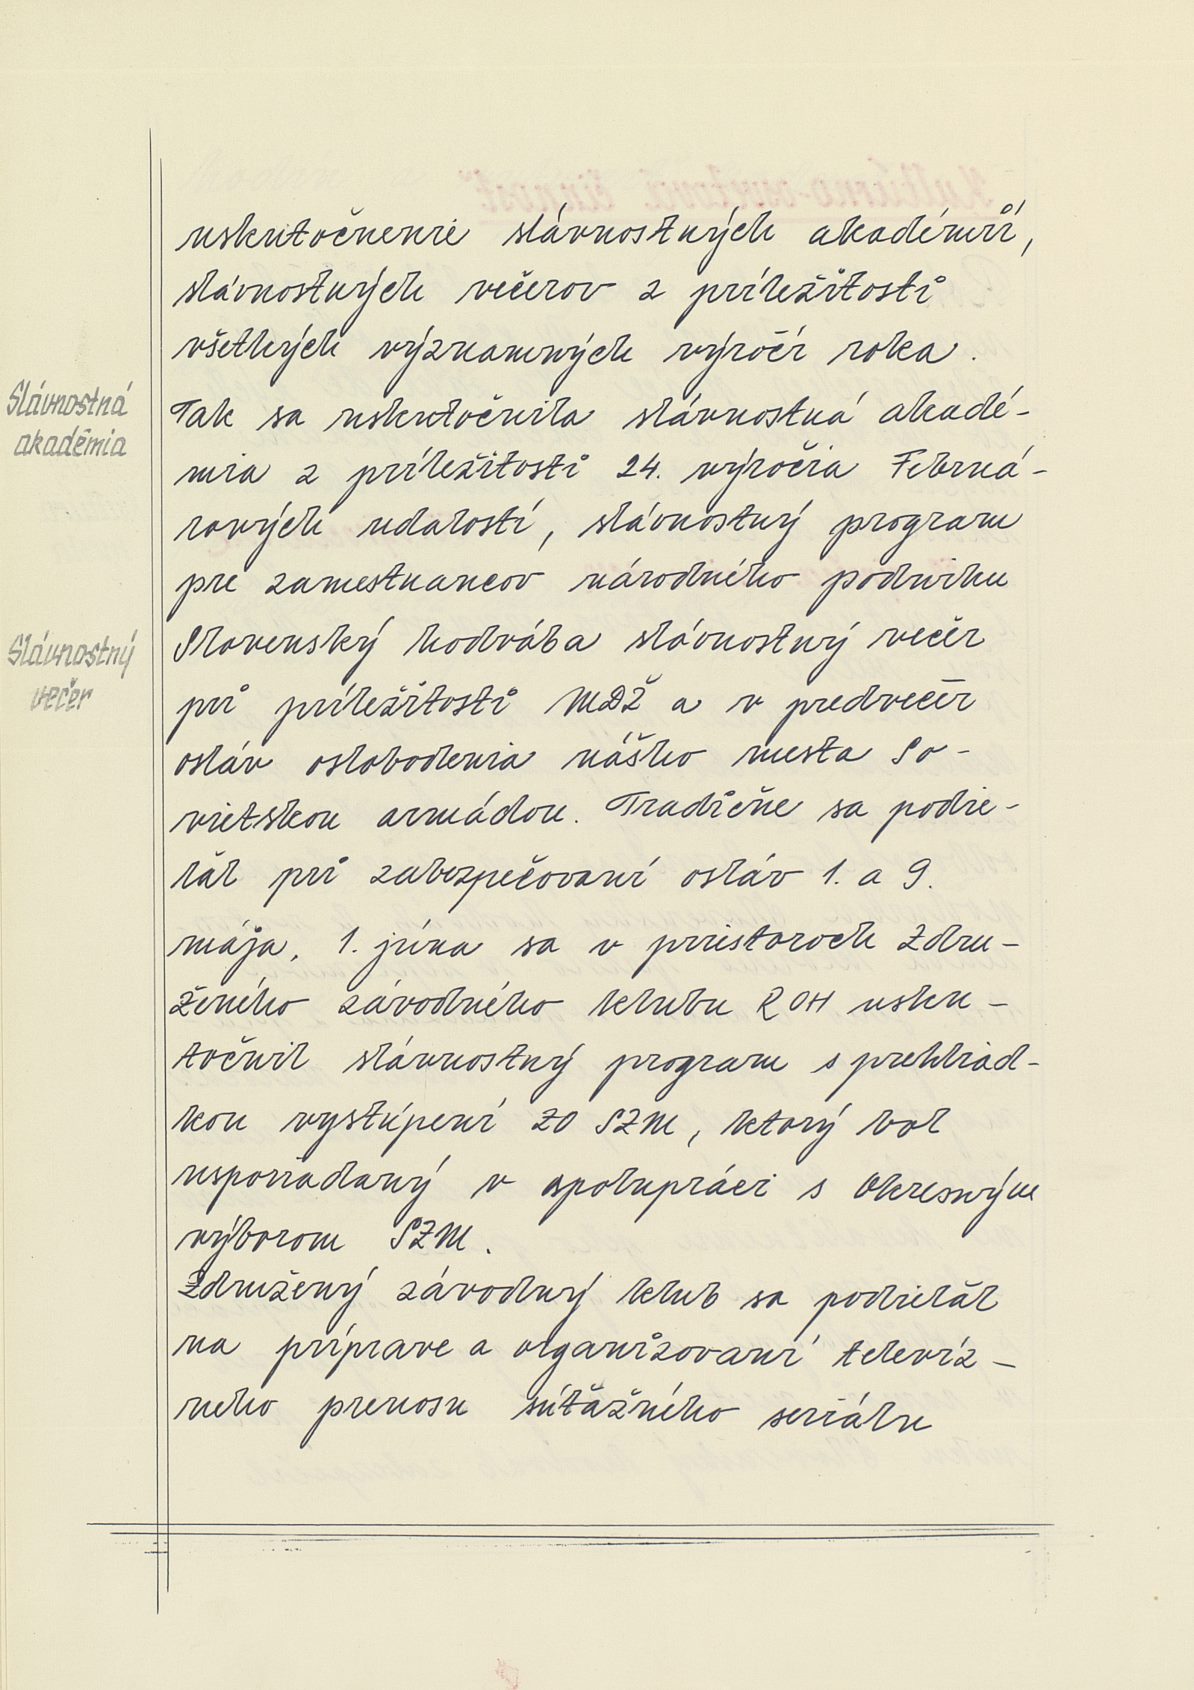 uskutočnenie slávnostných akadémií,
slávnostných večerov z príležitosti
všetkých významných výročí roka.
Slávnostná
akadémia
Tak sa uskutočnila slávnostná akadé-
mia z príležitosti 24. výročia Februá-
rových udalostí, slávnostný program
pre zamestnancov národného podniku
Slávnostný
večer
Slovenský hodvába slávnostný večer
pri príležitosti MDŽ a v predvečer
osláv oslobodenia nášho mesta So-
vietskou armádou. Tradične sa podie-
lal pri zabezpečovaní osláv 1. a 9.
mája. 1. júna sa v priestoroch Zdru-
ženého závodného klubu ROH usku-
točnil slávnostný program s prehliad-
kou vystúpení ZO SZM, ktorý bol
usporiadaný v spolupráci s Okresným
výborom SZM.
Združený závodný klub sa podielal
na príprave a organizovaní televíz-
neho prenosu súťažného seriálu